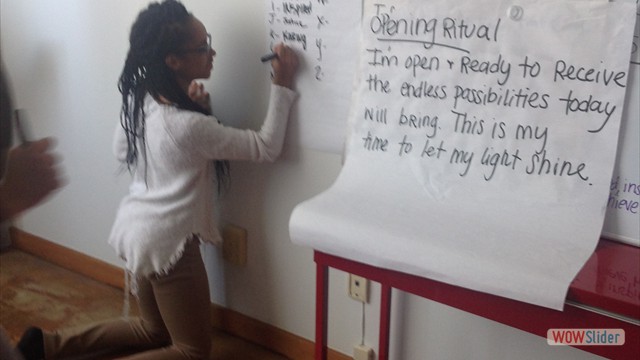 Opening Ritual
I'm open + Ready to Receive
the endless passibilities today
will bring. This is my
time to let my light shine.
I- inspired
J-
K-
X-
y-
Z-
WOWSlider